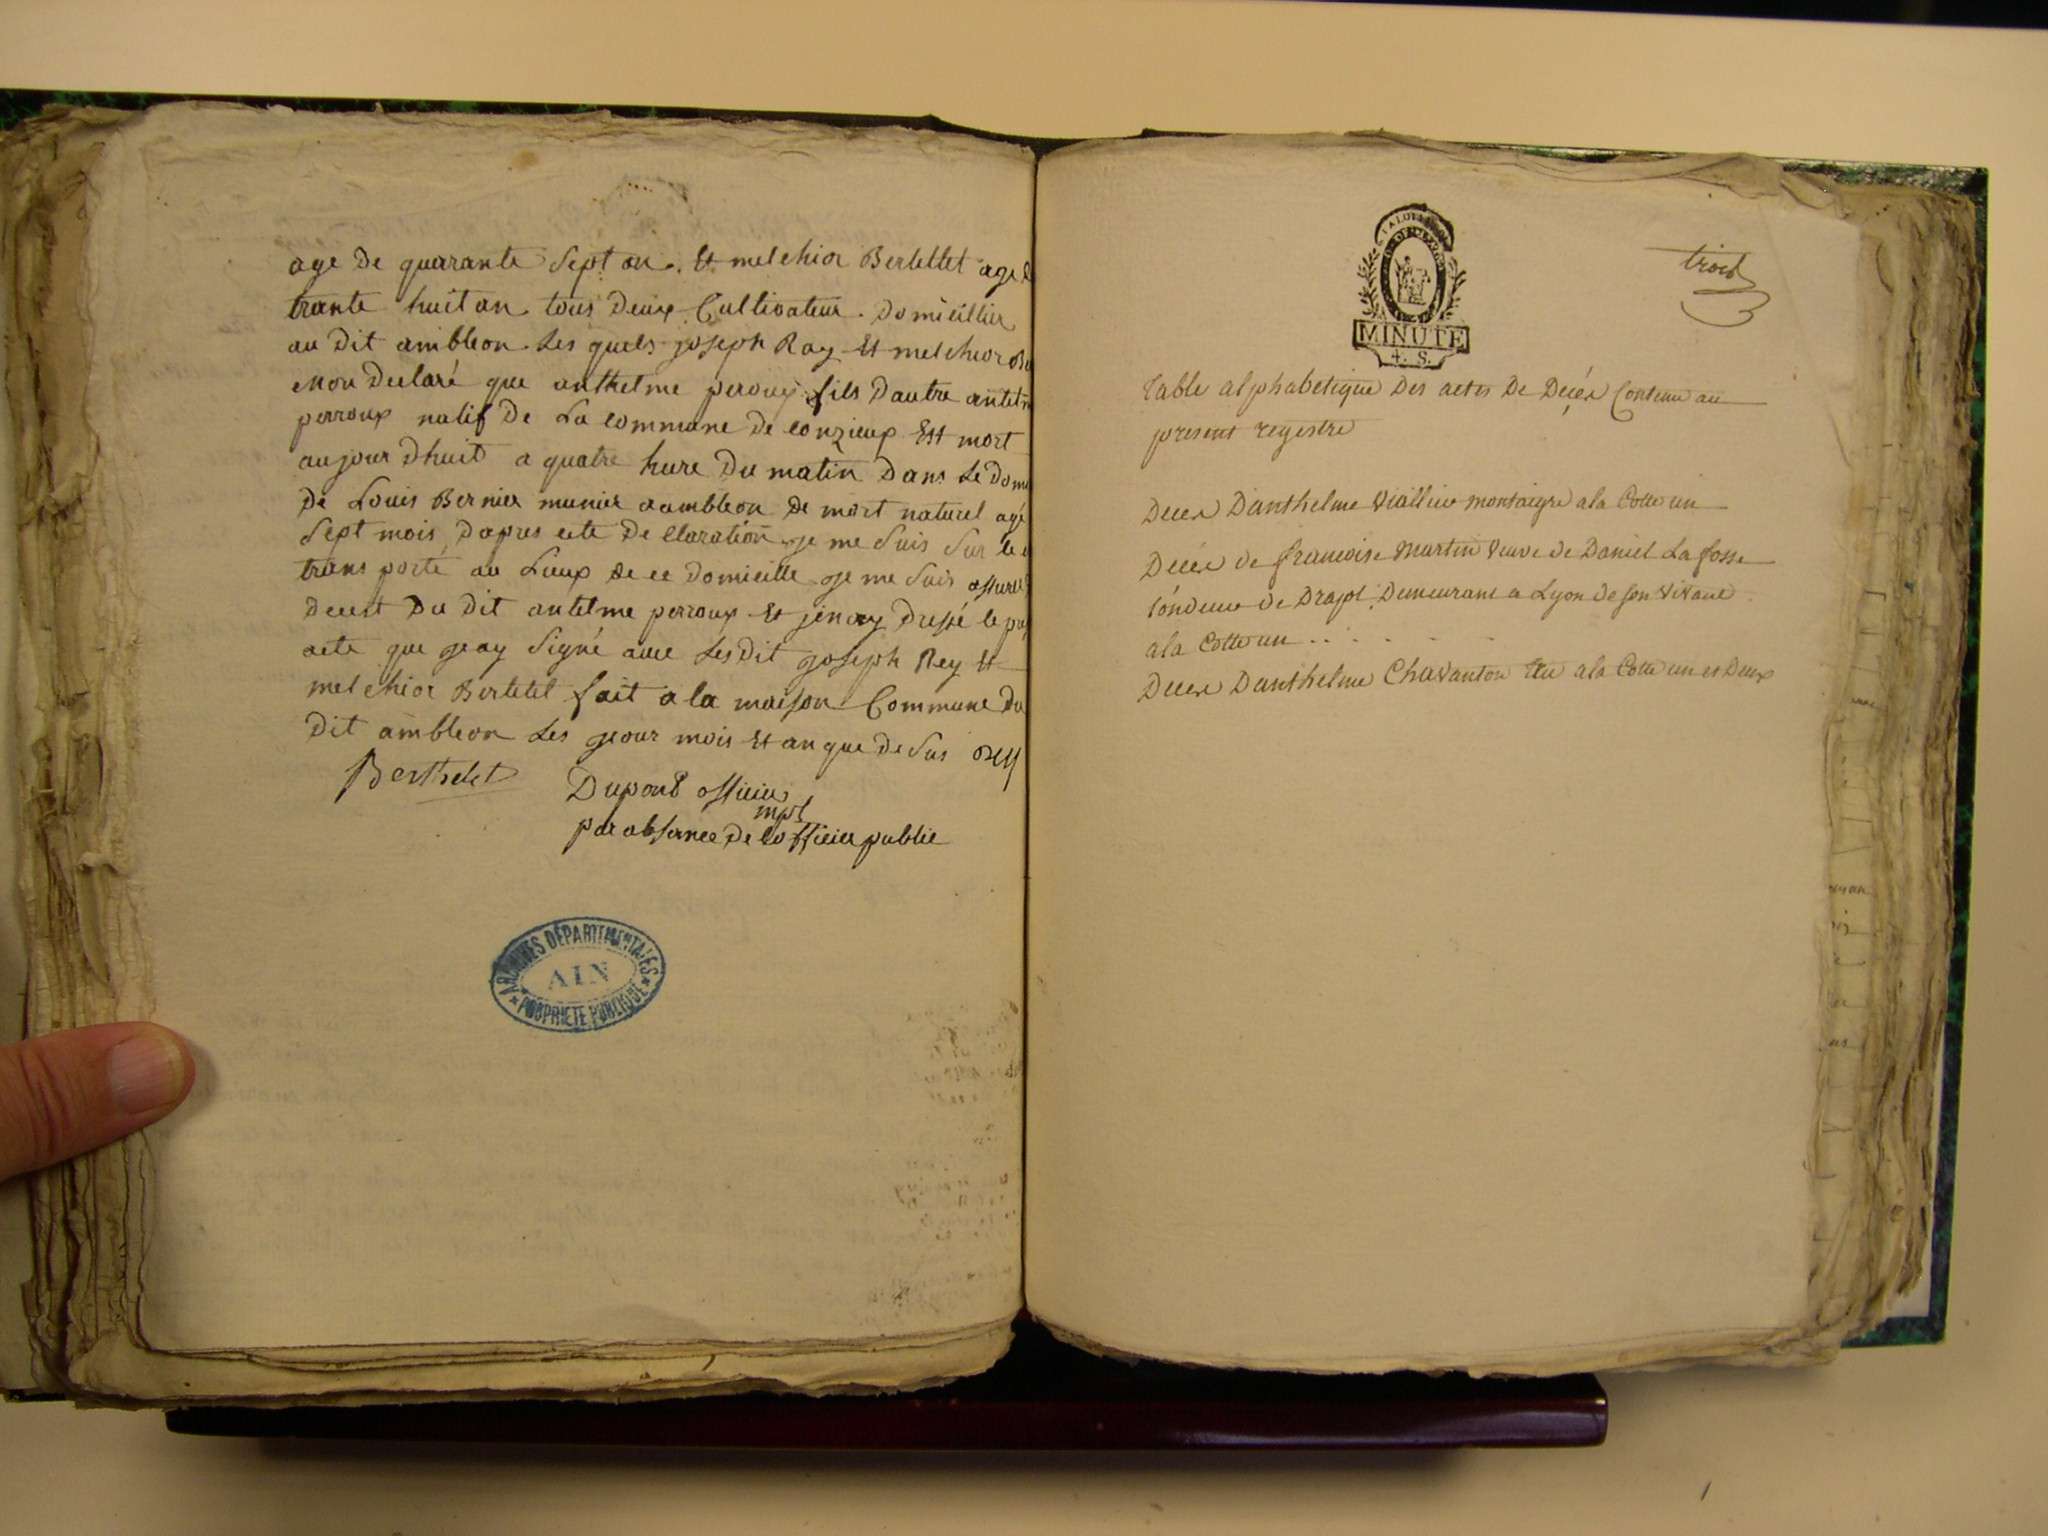 age de quarante Sept an. Et melchior Bertettet age d
trante huit an tous deux Cultivateur domicillier
au dit ambleon. Les quels joseph Ray Et melchior Be
mon declaré que anthelme peroux fils dautre antelm
perroux natif de La commune de conzieux Est mort
aujour dhuit a quatre hure du matin dans Le dom
de Louis Bernier munier aambleon de mort naturel agé
Sept mois dapres cete de Claration je me Suis Sur le
trans porté au Lieux de ce domicille je me Suis assuré
decest du dit antelme perroux Et jenay dressé le pr
acte que jeay Signé avec Lesdit joseph Rey Et
melchior Bertetet fait a la maison Commune du
dit ambleon Les jour mois Et an que de Sus Rey
Berthelet
Dupont officier
mpl
par absence de Lofficier public
ARCHIVES DÉPARTEMENTALES
AIN
PROPRIÉTÉ PUBLIQUE
LA LOI
MINUTE
4. S.
trois
Table alphabetique des actes de Decés Contenu au
present registre
Deces Danthelme Viallier montaigre a la Cotte un
Décés de francoise Martin Veuve de Daniel La fosse
tondeur de Drapt Demeurant a Lyon de son Vivant
a la Cotte un
Deces Danthelme Chavanton a la Cotte un et Deux